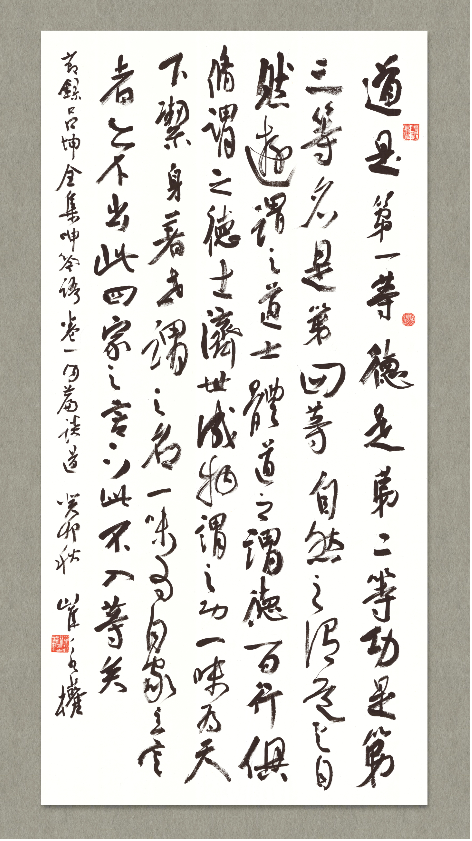 道是第一等德是第二等功是第
三等名是第四等自然之謂道与自
然遊謂之道士體道之謂德百行俱
脩謂之德士濟世成物謂之功一味為天
下潔身著世謂之名一味為自家立言
者亦不出此四家之言下此不入等矣
節錄呂坤全集呻吟語卷一內篇談道 癸卯秋 崔